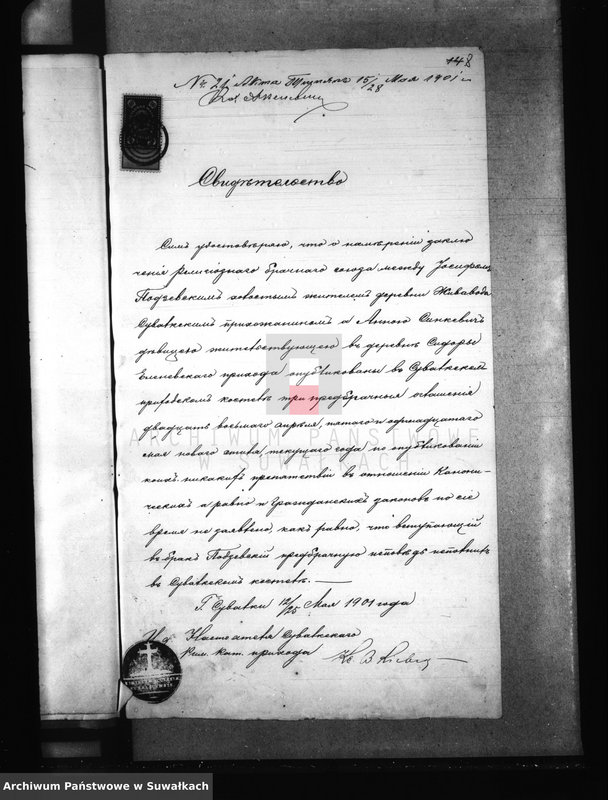 148
№ 21 Акта Шлупянъ 15/28 Мая 1901 г.
Свидѣтельство
Симъ удостовѣряю, что о намѣреніи заклю
ченія религіознаго брачнаго союза между Іосифомъ
Подзевскимъ холостымъ жителемъ деревни Живавода
Сувалкскимъ прихожаниномъ и Анною Синкевичъ
дѣвицею жительствующею въ деревнѣ Сидоры
Еленевскаго прихода опубликованы въ Сувалкскомъ
приходскомъ костелѣ три предбрачныя оглашенія
двадцать восьмаго апрѣля, пятаго и двѣнадцатаго
мая новаго стиля, текущаго года по опубликованіи
коихъ никакихъ препятствій въ отношеніи Канони-
ческихъ а равно и Гражданскихъ законовъ по сіе
время не заявлено, какъ равно, что вступающій
въ бракъ Подзевскій предбрачную исповѣдь исполнилъ
въ Сувалкскомъ костелѣ. —
Г. Сувалки 12/25 Мая 1901 года
И. д. Настоятеля Сувалкскаго
Рим. кат. прихода Кс. В.
ARCHIWUM PAŃSTWOWE
W SUWAŁKACH
Archiwum Państwowe w Suwałkach